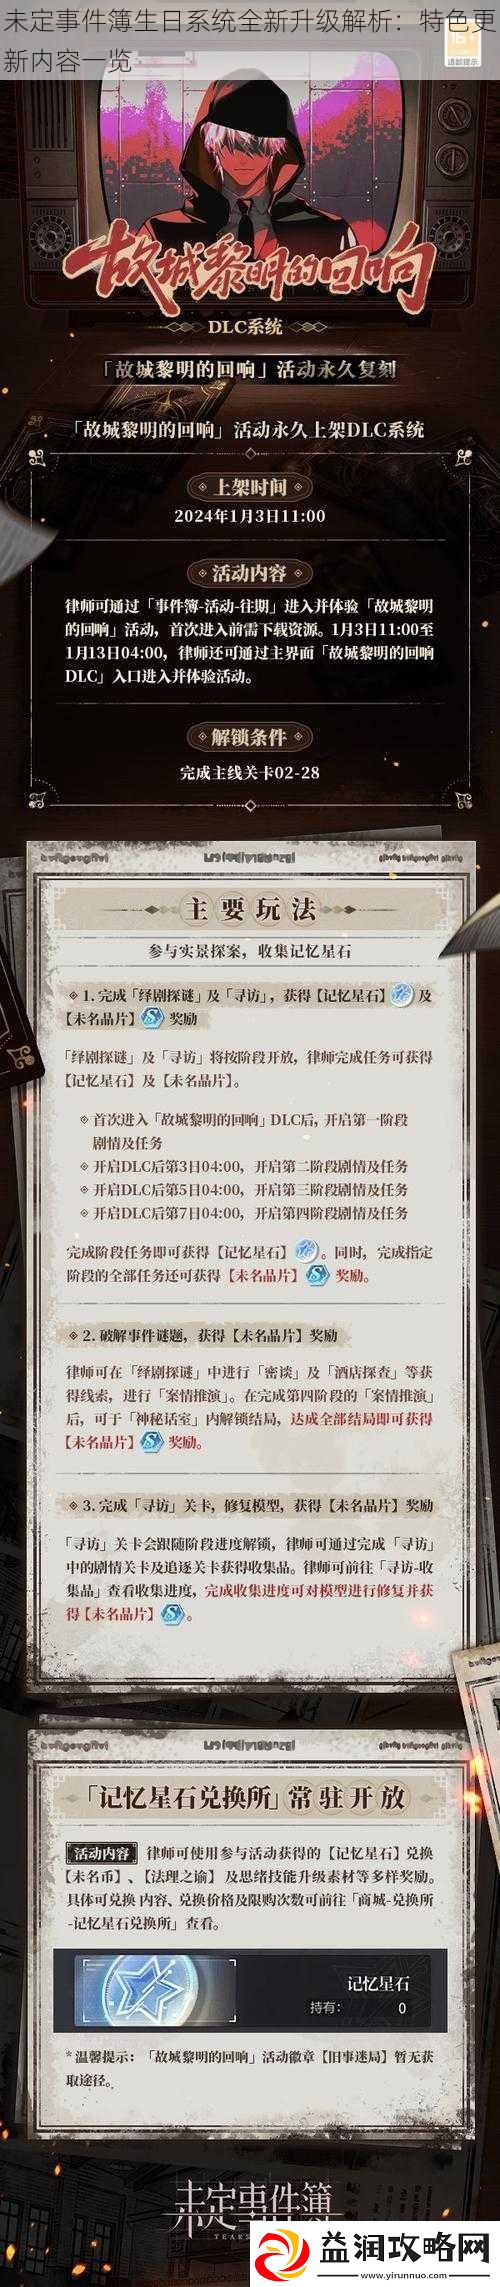 未定事件簿生日系统全新升级解析：特色更
新内容一览
16+
适龄提示
故城黎明的回响
DLC系统
「故城黎明的回响」活动永久复刻
「故城黎明的回响」活动永久上架DLC系统
上架时间
2024年1月3日11:00
活动内容
律师可通过「事件簿-活动-往期」进入并体验「故城黎明
的回响」活动，首次进入前需下载资源。1月3日11:00至
1月13日04:00，律师还可通过主界面「故城黎明的回响
DLC」入口进入并体验活动。
解锁条件
完成主线关卡02-28
主要玩法
参与实景探案，收集记忆星石
1. 完成「绎剧探谜」及「寻访」，获得【记忆星石】及
【未名晶片】奖励
「绎剧探谜」及「寻访」将按阶段开放，律师完成任务可获得
【记忆星石】及【未名晶片】。
首次进入「故城黎明的回响」DLC后，开启第一阶段
剧情及任务
开启DLC后第3日04:00，开启第二阶段剧情及任务
开启DLC后第5日04:00，开启第三阶段剧情及任务
开启DLC后第7日04:00，开启第四阶段剧情及任务
完成阶段任务即可获得【记忆星石】。同时，完成指定
阶段的全部任务还可获得【未名晶片】奖励。
2. 破解事件谜题，获得【未名晶片】奖励
律师可在「绎剧探谜」中进行「密谈」及「酒店探查」等获
得线索，进行「案情推演」。在完成第四阶段的「案情推演」
后，可于「神秘话室」内解锁结局，达成全部结局即可获得
【未名晶片】奖励。
3. 完成「寻访」关卡，修复模型，获得【未名晶片】奖励
「寻访」关卡会跟随阶段进度解锁，律师可通过完成「寻访」
中的剧情关卡及追逐关卡获得收集品。律师可前往「寻访-收
集品」查看收集进度，完成收集进度可对模型进行修复并获
得【未名晶片】。
「记忆星石兑换所」常驻开放
活动内容 律师可使用参与活动获得的【记忆星石】兑换
【未名币】、【法理之谕】及思绪技能升级素材等多样奖励。
具体可兑换内容、兑换价格及限购次数可前往「商城-兑换所
-记忆星石兑换所」查看。
记忆星石
持有： 0
* 温馨提示：「故城黎明的回响」活动徽章【旧事迷局】暂无获
取途径。
未定事件簿
益润攻略网
www.yirunnuo.com